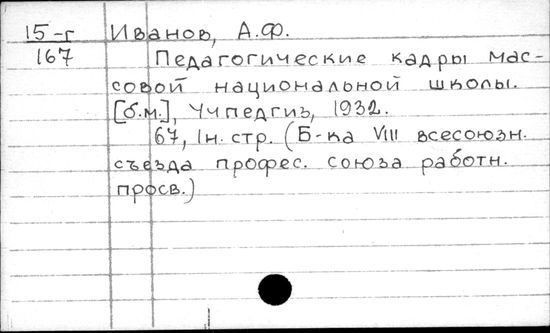 15-г Иванов, А.Ф.
167 Педагогические кадры мас-
совой национальной школы.
[б.м.], Учпедгиз, 1932.
67, 1н. стр. (Б-ка VIII всесоюзн.
съезда професс. союза работн.
просв.)